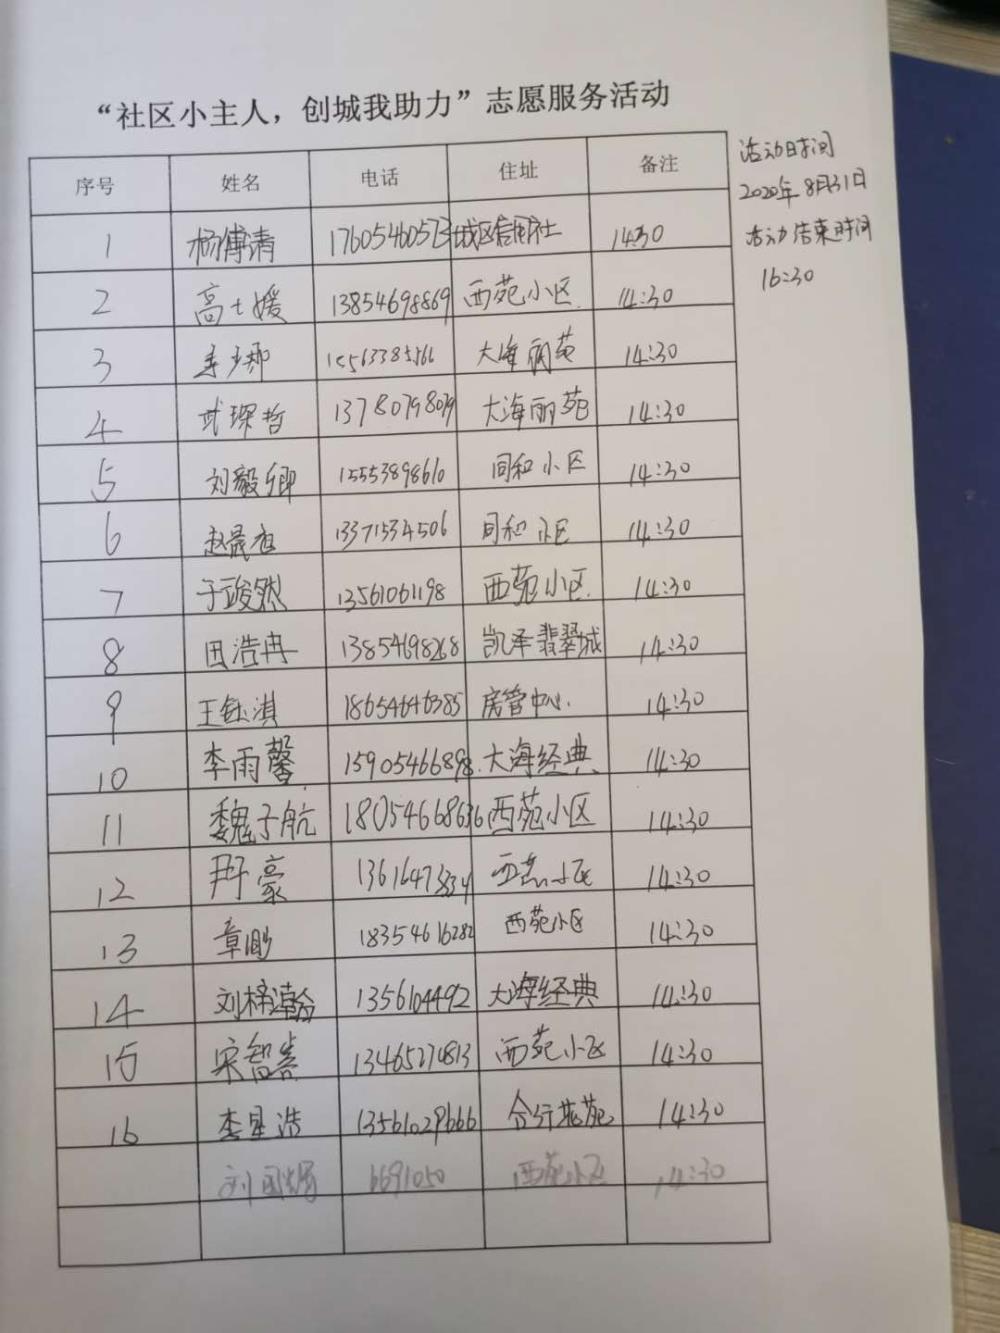 “社区小主人，创城我助力”志愿服务活动
活动时间
2020年8月31日
活动结束时间
16:30
序号 姓名 电话 住址 备注
1 杨博清 17605460573 城区信用社 14:30
2 高士媛 13854698869 西苑小区 14:30
3 15563385566 大海丽苑 14:30
4 武琛哲 1378079809 大海丽苑 14:30
5 刘毅卿 15553898610 同和小区 14:30
6 赵晟旭 13371534506 同和小区 14:30
7 于竣然 13561061198 西苑小区 14:30
8 田浩冉 13854698268 凯泽翡翠城 14:30
9 王钰淇 18654646385 房管中心. 14:30
10 李雨馨 15905466898 大海经典 14:30
11 魏子航 18054668636 西苑小区 14:30
12 豪 西苑小区 14:30
13 章 18354616282 西苑小区 14:30
14 刘梓瀚 1356104492 大海经典 14:30
15 宋智 13465274813 西苑小区 14:30
16 李星浩 13561029666 14:30
刘国 6691050 西苑小区 14:30